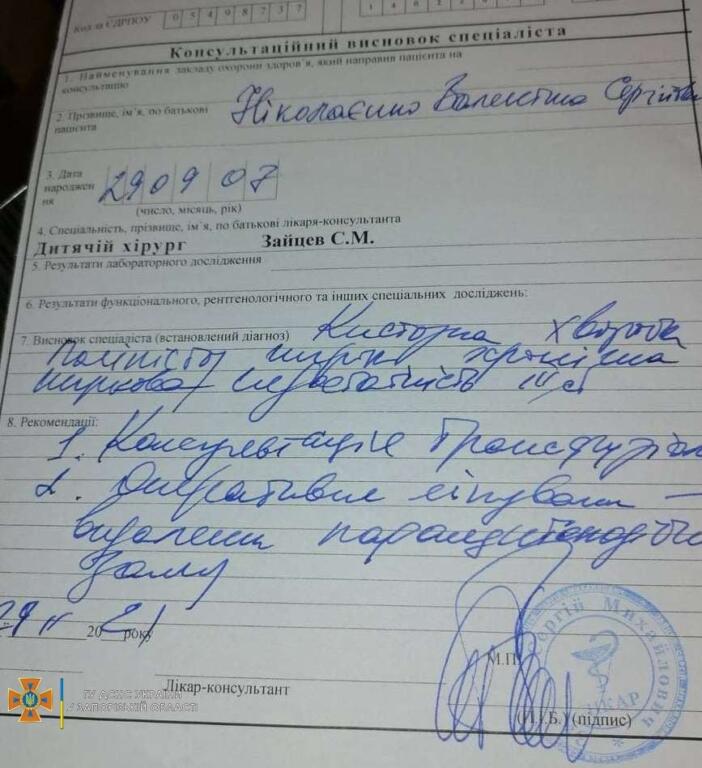 Код за ЄДРПОУ 05498737
Консультаційний висновок спеціаліста
1. Найменування закладу охорони здоров'я, який направив пацієнта на
консультацію
2. Прізвище, ім'я, по батькові
пацієнта
Ніколаєнко Валентина
3. Дата
народжен
ня
29 09 07
(число, місяць, рік)
4. Спеціальність, прізвище, ім'я, по батькові лікаря-консультанта
Дитячій хірург Зайцев С.М.
5. Результати лабораторного дослідження
6. Результати функціонального, рентгенологічного та інших спеціальних досліджень:
7. Висновок спеціаліста (встановлений діагноз) Кистозна хвороба
хронічна
ниркова
8. Рекомендації:
1. Консультація
2. Оперативне лікування —
видалення
29 11 2021 року
М.П.
Лікар-консультант
(П.І.Б.) (підпис)
Сергій Михайлович
ЛІКАР
ГУ ДСНС УКРАЇНИ
У ЗАПОРІЗЬКІЙ ОБЛАСТІ